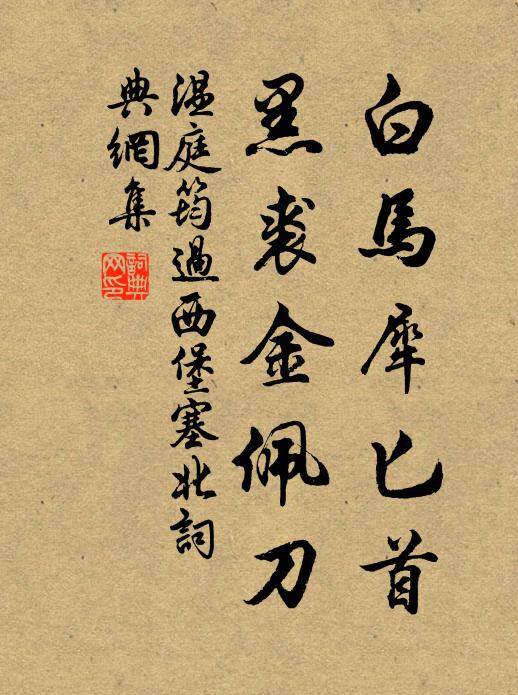 白馬犀匕首
黑裘金佩刀
溫庭筠過西堡塞北詞
典網集
詞典網印